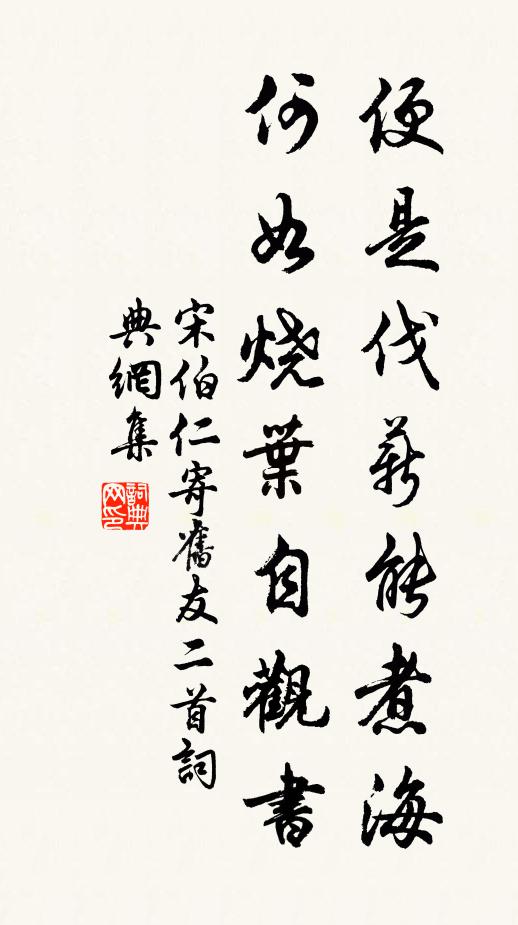 便是伐薪能煮海
何如燒葉自觀書
宋伯仁寄舊友二首詞
典網集
詞典
网印